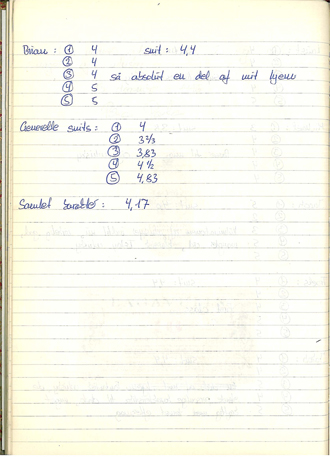 Brian: ① 4 snit: 4,4
② 4
③ 4 så absolut en del af mit hjem
④ 5
⑤ 5
Generelle snits: ① 4
② 3 2/3
③ 3,83
④ 4 ½
⑤ 4,83
Samlet karakter: 4,17